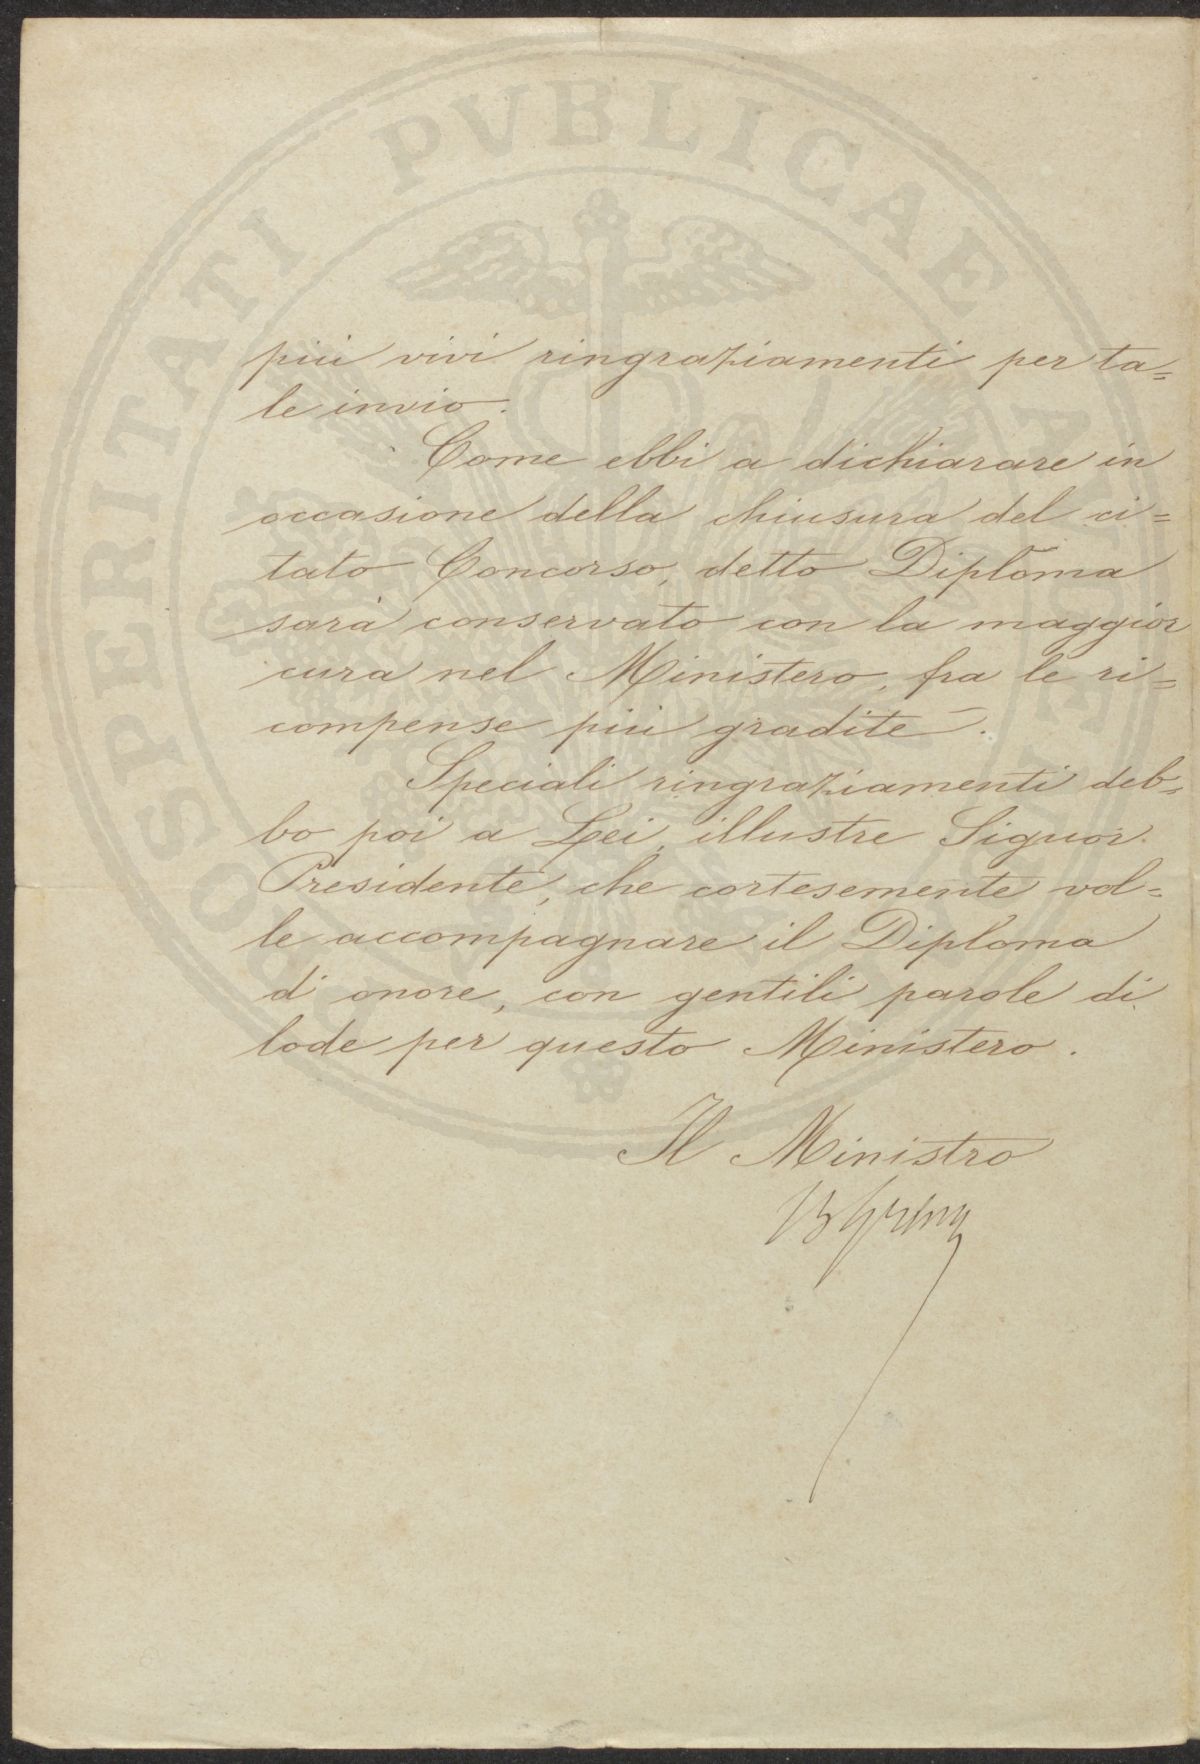 PROSPERITATI PVBLICAE AVGENDAE
più vivi ringraziamenti per ta=
le invio.
Come ebbi a dichiarare in
occasione della chiusura del ci=
tato Concorso, detto Diploma
sarà conservato con la maggior
cura nel Ministero, fra le ri=
compense più gradite.
Speciali ringraziamenti deb=
bo poi a Lei, illustre Signor
Presidente, che cortesemente vol=
le accompagnare il Diploma
d'onore, con gentili parole di
lode per questo Ministero.
Il Ministro